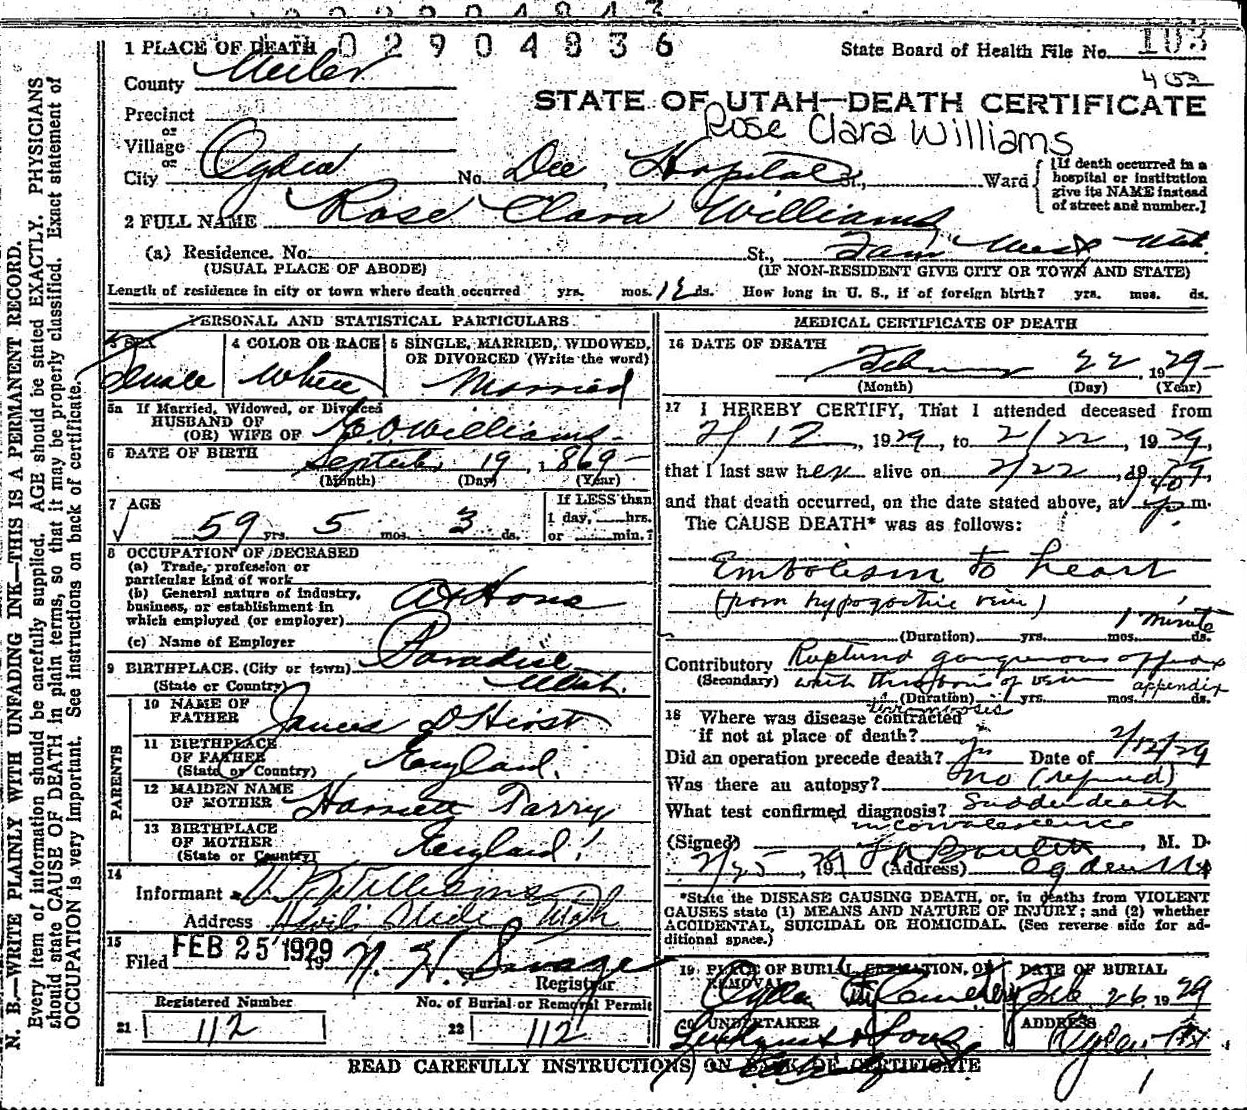 02904836
State Board of Health File No. 103
1 PLACE OF DEATH
County Weber
STATE OF UTAH—DEATH CERTIFICATE
Rose Clara Williams
Precinct
or
Village
or
City Ogden No. Dee Hospital St., Ward
[If death occurred in a hospital or institution give its NAME instead of street and number.]
2 FULL NAME Rose Clara Williams
(a) Residence. No. St.,
(USUAL PLACE OF ABODE) (IF NON-RESIDENT GIVE CITY OR TOWN AND STATE)
Length of residence in city or town where death occurred yrs. mos. ds. How long in U. S., if of foreign birth? yrs. mos. ds.
N. B.—WRITE PLAINLY WITH UNFADING INK—THIS IS A PERMANENT RECORD.
Every item of information should be carefully supplied. AGE should be stated EXACTLY. PHYSICIANS
should state CAUSE OF DEATH in plain terms, so that it may be properly classified. Exact statement of
OCCUPATION is very important. See instructions on back of certificate.
PERSONAL AND STATISTICAL PARTICULARS
3 SEX Female
4 COLOR OR RACE White
5 SINGLE, MARRIED, WIDOWED, OR DIVORCED (Write the word) Married
5a If Married, Widowed, or Divorced
HUSBAND OF
(OR) WIFE OF E.O. Williams
6 DATE OF BIRTH September 19, 1869
(Month) (Day) (Year)
7 AGE
59 yrs. 5 mos. 3 ds.
If LESS than
1 day, hrs.
or min.?
8 OCCUPATION OF DECEASED
(a) Trade, profession or
particular kind of work
(b) General nature of industry,
business, or establishment in
which employed (or employer) At Home
(c) Name of Employer
9 BIRTHPLACE. (City or town) Paradise
(State or Country) Utah.
PARENTS
10 NAME OF FATHER James D Hirst
11 BIRTHPLACE OF FATHER
(State or Country) England.
12 MAIDEN NAME OF MOTHER Harriett Tarry
13 BIRTHPLACE OF MOTHER
(State or Country) England
14
Informant Williams
Address Utah
15
Filed FEB 25 1929 19 N. H. Savage
Registrar
Registered Number
21 112
No. of Burial or Removal Permit
22 112
MEDICAL CERTIFICATE OF DEATH
16 DATE OF DEATH
February 22, 1929
(Month) (Day) (Year)
17 I HEREBY CERTIFY, That I attended deceased from
2/12, 1929, to 2/22, 1929,
that I last saw her alive on 2/22, 1929,
and that death occurred, on the date stated above, at p m.
The CAUSE DEATH* was as follows:
Embolism to heart
(from hypogastric vein)
1 minute
(Duration) yrs. mos. ds.
Contributory Ruptured gangrenous appendix
(Secondary) with thrombosis of vein appendix
thrombosis
(Duration) yrs. mos. ds.
18 Where was disease contracted
if not at place of death?
Did an operation precede death? yes Date of 2/12/29
Was there an autopsy? no (refused)
What test confirmed diagnosis? Sudden death
in convalescence
(Signed) M. D.
2/25, 1929 (Address) Ogden Ut
*State the DISEASE CAUSING DEATH, or, in deaths from VIOLENT
CAUSES state (1) MEANS AND NATURE OF INJURY; and (2) whether
ACCIDENTAL, SUICIDAL OR HOMICIDAL. (See reverse side for ad-
ditional space.)
19 PLACE OF BURIAL, CREMATION, OR REMOVAL DATE OF BURIAL
Ogden City Cemetery Feb 26 1929
20 UNDERTAKER ADDRESS
Lindquist & Sons Ogden Ut
READ CAREFULLY INSTRUCTIONS ON BACK OF CERTIFICATE